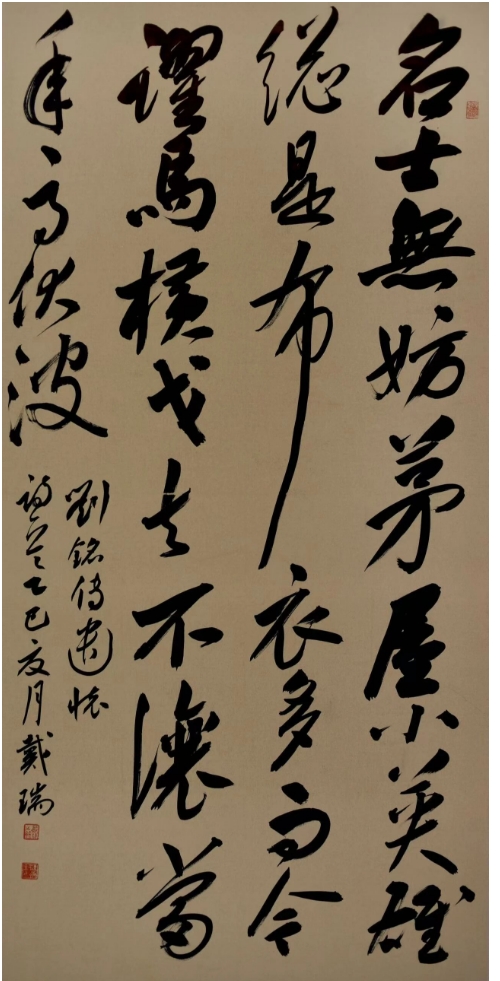 名士無妨茅屋小英雄
總是布衣多而今
躍馬橫戈去不讓當
年馬伏波
劉銘傳遣懷
詩一首乙巳夏月戴瑞